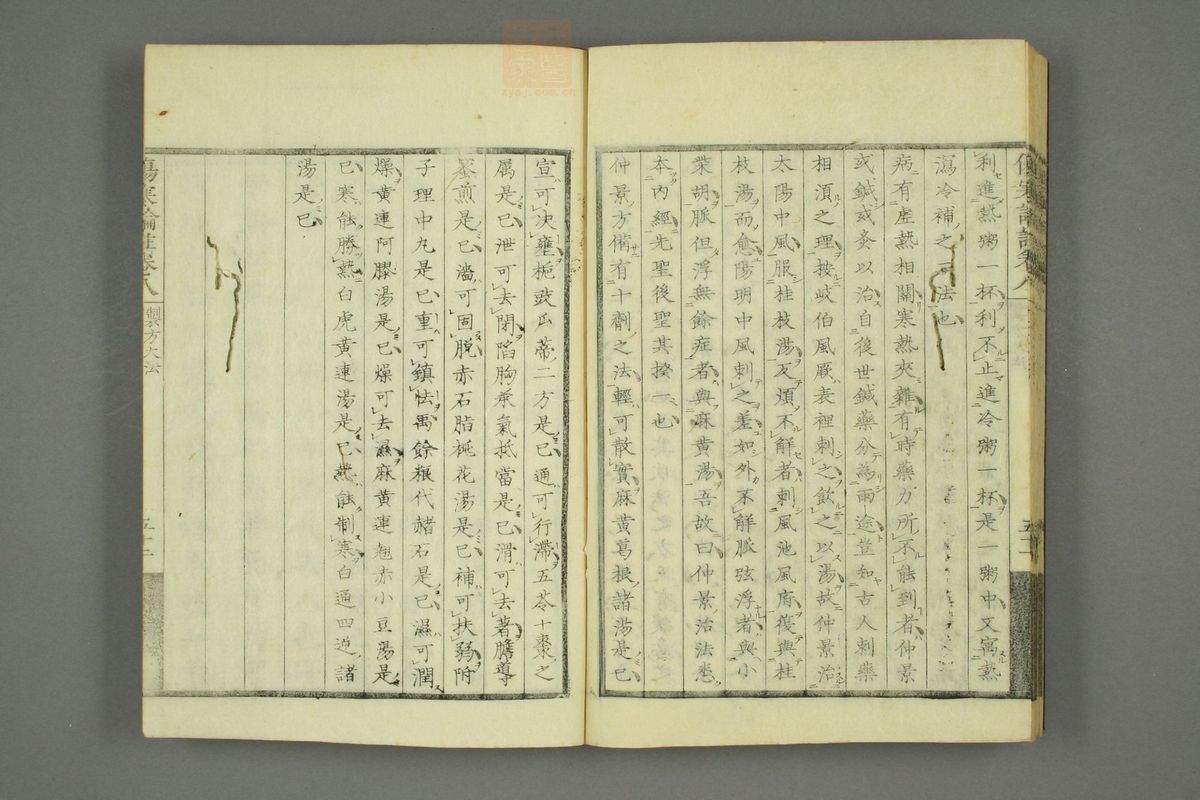 利進熱粥一杯利不止進冷粥一杯是一粥中又寓熱
瀉冷補之二法也
病有虛熱相關寒熱夾雜有時藥力所不能到者仲景
或鍼或灸以治自後世鍼藥分為兩途豈知古人刺藥
相須之理按岐伯風厥表裡刺之飲之以湯故仲景治
太陽中風服桂枝湯反煩不解者刺風池風府復與桂
枝湯而愈陽明中風刺之差如外不解脈弦浮者與小
柴胡脈但浮無餘症者與麻黄湯吾故曰仲景治法悉
本內經先聖後聖其揆一也
仲景方備有十劑之法輕可散實麻黄葛根諸湯是已
宣可决壅梔豉瓜蒂二方是已通可行滯五苓十棗之
属是已泄可去閉陷胸承氣抵當是已滑可去著膽導
蜜煎是已濇可固脱赤石脂桃花湯是已補可扶弱附
子理中丸是已重可鎮怯禹餘粮代赭石是已濕可潤
燥黄連阿膠湯是已燥可去濕麻黄連翹赤小豆湯是
已寒能勝熱白虎黄連湯是已熱能制寒白通四逆諸
湯是已
傷寒論註卷八
製方大法